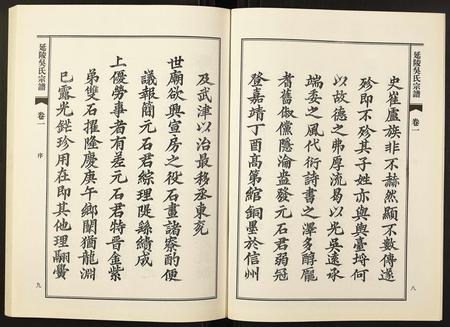 延陵吳氏宗譜
卷一
八
史崔盧族非不赫然顯不數傳遂
殄即不殄其子姓亦與輿臺埒何
以故德之弗厚流易以光吳遠承
端委之風代衍詩書之澤多醇龐
耆舊俶儻隱淪益發元石君弱冠
登嘉靖丁酉高第綰銅墨於信州
及武津以治最移丞東兗
世廟欲興宣房之役石畫諸寮酌便
議報簡元石君綜理陡緜績成
上優勞事者有差元石君特晉金紫
弟雙石擢隆慶庚午鄉闈猶龍淵
已露光鋩珍用在即其他理翮黌
延陵吳氏宗譜
卷一
序
九